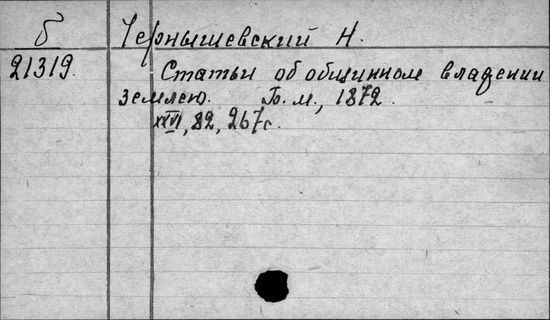 Б Чернышевский Н.
21319. Статьи об общинном владении
землею. Б. м., 1872.
XVI, 82, 267с.